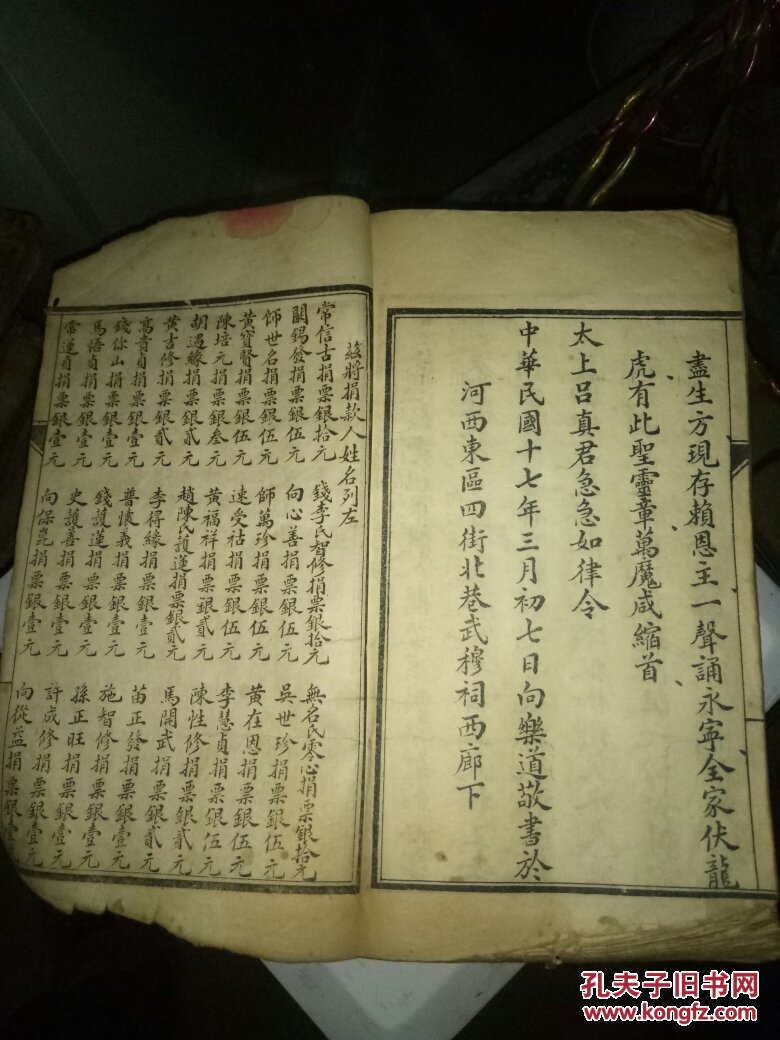 盡生方現存賴恩主一聲誦永寧全家伏龍
虎有此聖靈章萬魔咸縮首
太上呂真君急急如律令
中華民國十七年三月初七日向樂道敬書於
河西東區四街北巷武穆祠西廊下
茲將捐款人姓名列左
常信古捐票銀拾元 錢李氏智修捐票銀拾元 無名氏零心捐票銀拾元
關錫發捐票銀伍元 向心善捐票銀伍元 吳世珍捐票銀伍元
師世名捐票銀伍元 師萬珍捐票銀伍元 黃在恩捐票銀伍元
黃寶賢捐票銀伍元 速受祜捐票銀伍元 李慧貞捐票銀伍元
陳培元捐票銀叁元 黃福祥捐票銀貳元 陳性修捐票銀貳元
胡遇緣捐票銀貳元 趙陳氏護蓮捐票銀貳元 馬開武捐票銀貳元
黃吉修捐票銀貳元 李得緣捐票銀壹元 苗正發捐票銀貳元
高貴貞捐票銀壹元 普懷義捐票銀壹元 施智修捐票銀壹元
錢你山捐票銀壹元 錢護蓮捐票銀壹元 孫正旺捐票銀壹元
馬悟貞捐票銀壹元 史護善捐票銀壹元 許成修捐票銀壹元
常運貞捐票銀壹元 向保崑捐票銀壹元 向從益捐票銀壹
孔夫子旧书网
www.kongfz.com